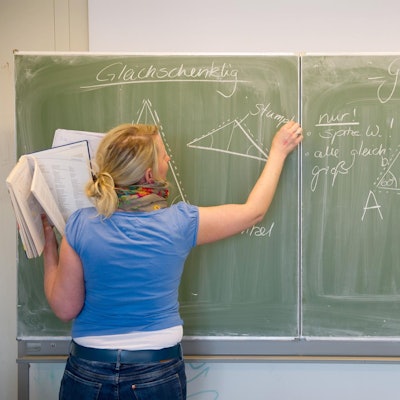 Gleichschenklig
Stumpf
nur!
• spitze W.
• alle gleich
groß
A